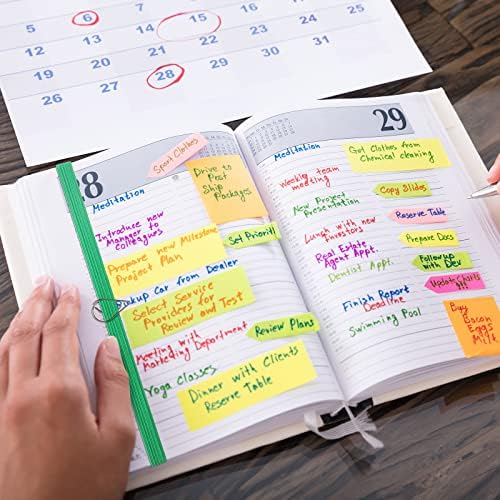 5 6 7 8 9 10
12 13 14 15 16 17
19 20 21 22 23 24
26 27 28 29 30 31
8
Meditation
Sport Clothes
Drive to
Post
Ship
Packages
Introduce new
Manager to
Colleagues
Set Prioriti
Prepare new Milestone
Project Plan
Pickup Car from Dealer
Select Service
Providers for
Review and Test
Meeting with
Marketing Department
Review Plans
Yoga Classes
Dinner with Clients
Reserve Table
29
Meditation
Got Clothes from
Chemical cleaning
Weekly team
meeting
Copy Slides
New Project
Presentation
Reserve Table
Lunch with new
investors
Prepare Docs
Real Estate
Agent Appt.
Followup
with Dev
Dentist Appt.
Update Charts
Finish Report
Deadline
Buy
Bacon
Eggs
Milk
Swimming Pool